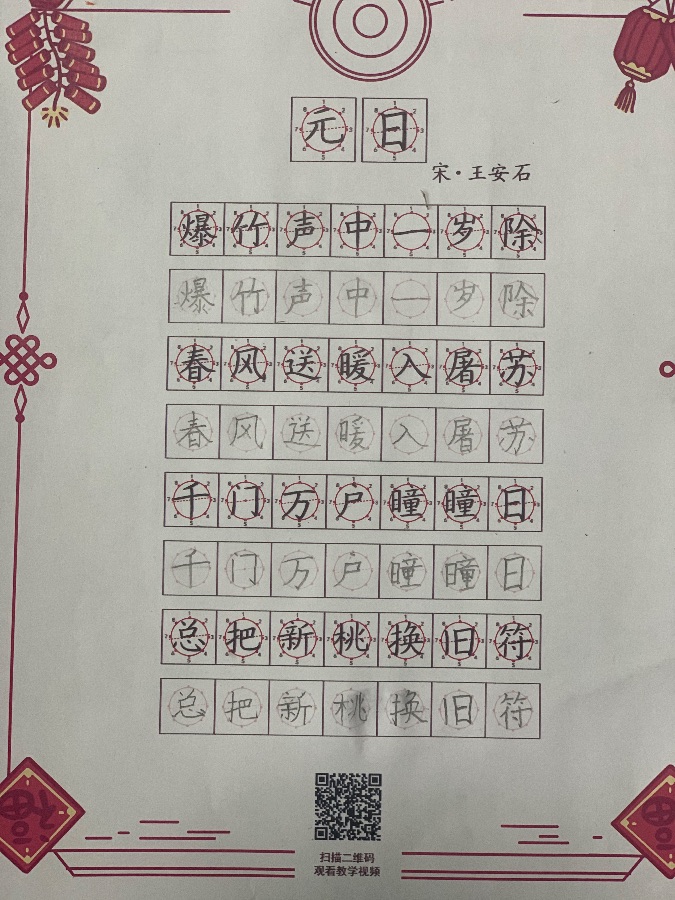 元日
宋·王安石
爆竹声中一岁除
爆竹声中一岁除
春风送暖入屠苏
春风送暖入屠苏
千门万户曈曈日
千门万户瞳瞳日
总把新桃换旧符
总把新桃换旧符
福
福
扫描二维码
观看教学视频